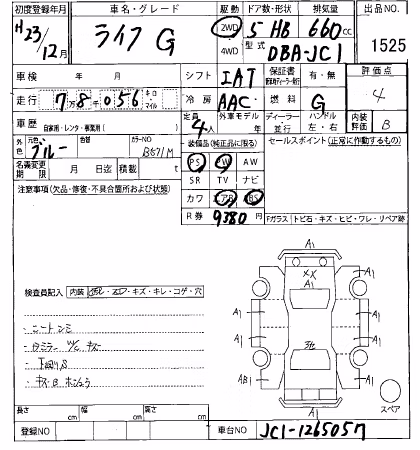 初度登録年月 車名・グレード 駆動 ドア数・形状 排気量 出品NO.
H23/12月 ライフ G 2WD 4WD 5 HB 660cc 1525
型式 DBA-JC1
車検 年 月 シフト IAT 保証書 有・無 評価点 4
走行 7万8千056 キロ・マイル 冷房 AAC 燃料 G
車歴 自家用・レンタ・事業用( ) 定員 4人 外車モデル ディーラー・並行 ハンドル 左・右 内装評価 B
外色 元色 ブルー 色替 カラーNO B571M 装備品(純正品に限る) セールスポイント(正常に作動するもの)
名義変更期限 月 日迄 積載 t PS PW AW
注意事項(欠品・修復・不具合箇所および状態) SR TV ナビ
カワ エアB ABS
R券 9380円 Fガラス トビ石・キズ・ヒビ・ワレ・リペア跡
A1
A1 XX A1
A1
検査員記入 内装 ・キズ・キレ・コゲ・穴
A1 A1
シートシミ
キズ
AB1 A1
A1
スペア
長さ cm 幅 cm 高さ cm
登録NO 車台NO JC1-1265057